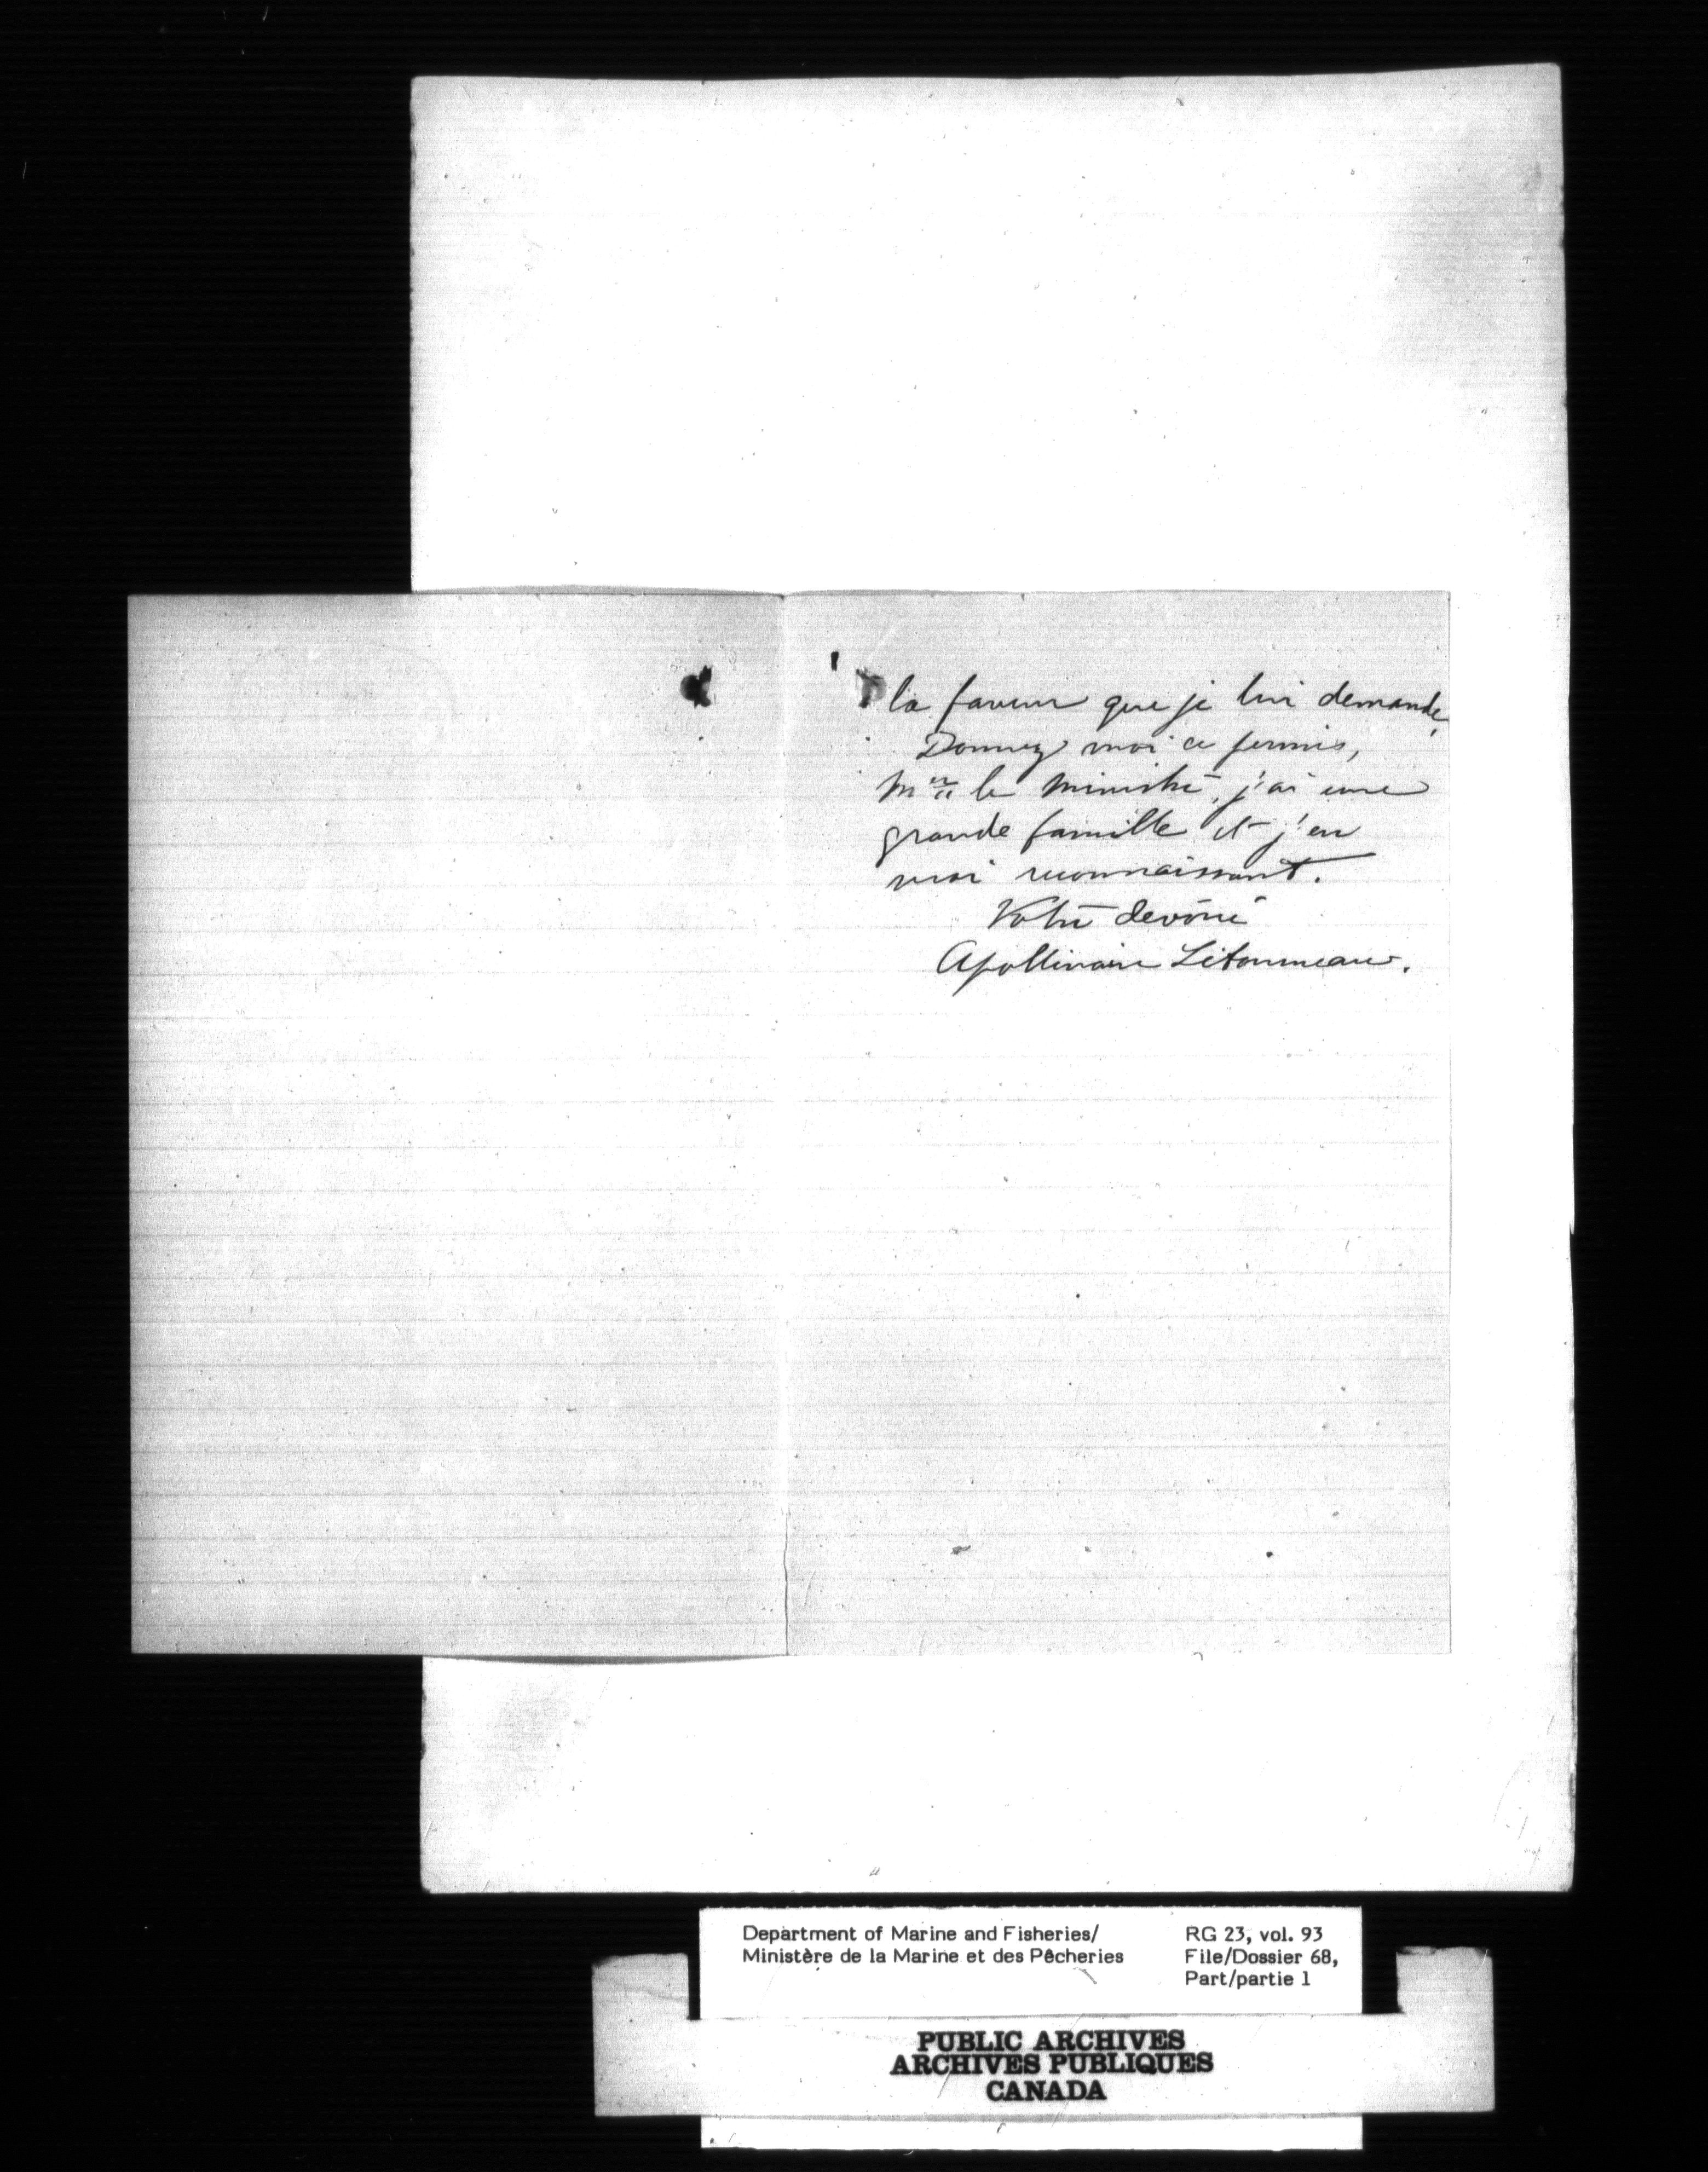 la faveur que je lui demande,
Donnez moi ce permis,
Mr le Ministre, j'ai une
grande famille et j'en
reconnaissant.
Votre dévoué
Apollinaire Letourneau.
Department of Marine and Fisheries/
Ministère de la Marine et des Pêcheries
RG 23, vol. 93
File/Dossier 68,
Part/partie 1
PUBLIC ARCHIVES
ARCHIVES PUBLIQUES
CANADA